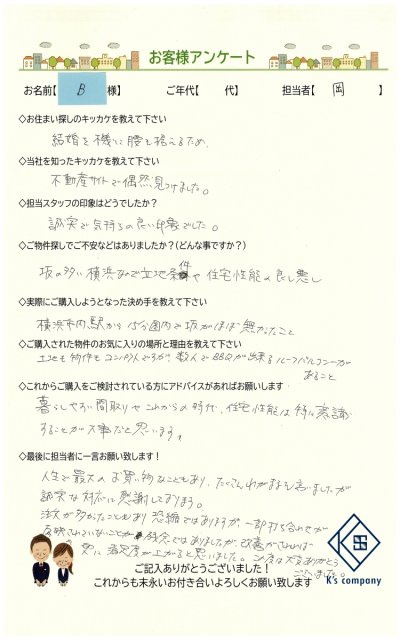 お客様アンケート
お名前【 B 様】 ご年代【 代】 担当者【 岡 】
◇お住まい探しのキッカケを教えて下さい
結婚を機に腰を据えるため、
◇当社を知ったキッカケを教えて下さい
不動産サイトで偶然見つけました。
◇担当スタッフの印象はどうでしたか?
誠実で気持ちの良い印象でした。
◇ご物件探しでご不安などはありましたか?(どんな事ですか?)
坂の多い横浜なので立地条件や住宅性能の良し悪し
◇実際にご購入しようとなった決め手を教えて下さい
横浜市内駅から15分圏内で坂がほぼ無かったこと
◇ご購入された物件のお気に入りの場所と理由を教えて下さい
土地も物件もコンパクトですが、数人でBBQが出来るルーフバルコニーが
あること
◇これからご購入をご検討されている方にアドバイスがあればお願いします
暮らしやすい間取りやこれからの時代、住宅性能は特に意識
することが大事だと思います。
◇最後に担当者に一言お願い致します!
人生で最大のお買い物なこともあり、たくさんわがままを言いましたが
誠実な対応に感謝しております。
注文が多かったこともあり恐縮ではありますが、一部打ち合わせが
反映されていないことが残念ではありましたが、改善がされれば
更に満足度が上がると思いました。この度は大変ありがとう
ございました。
ご記入ありがとうございました!
これからも末永いお付き合いよろしくお願い致します
K's company